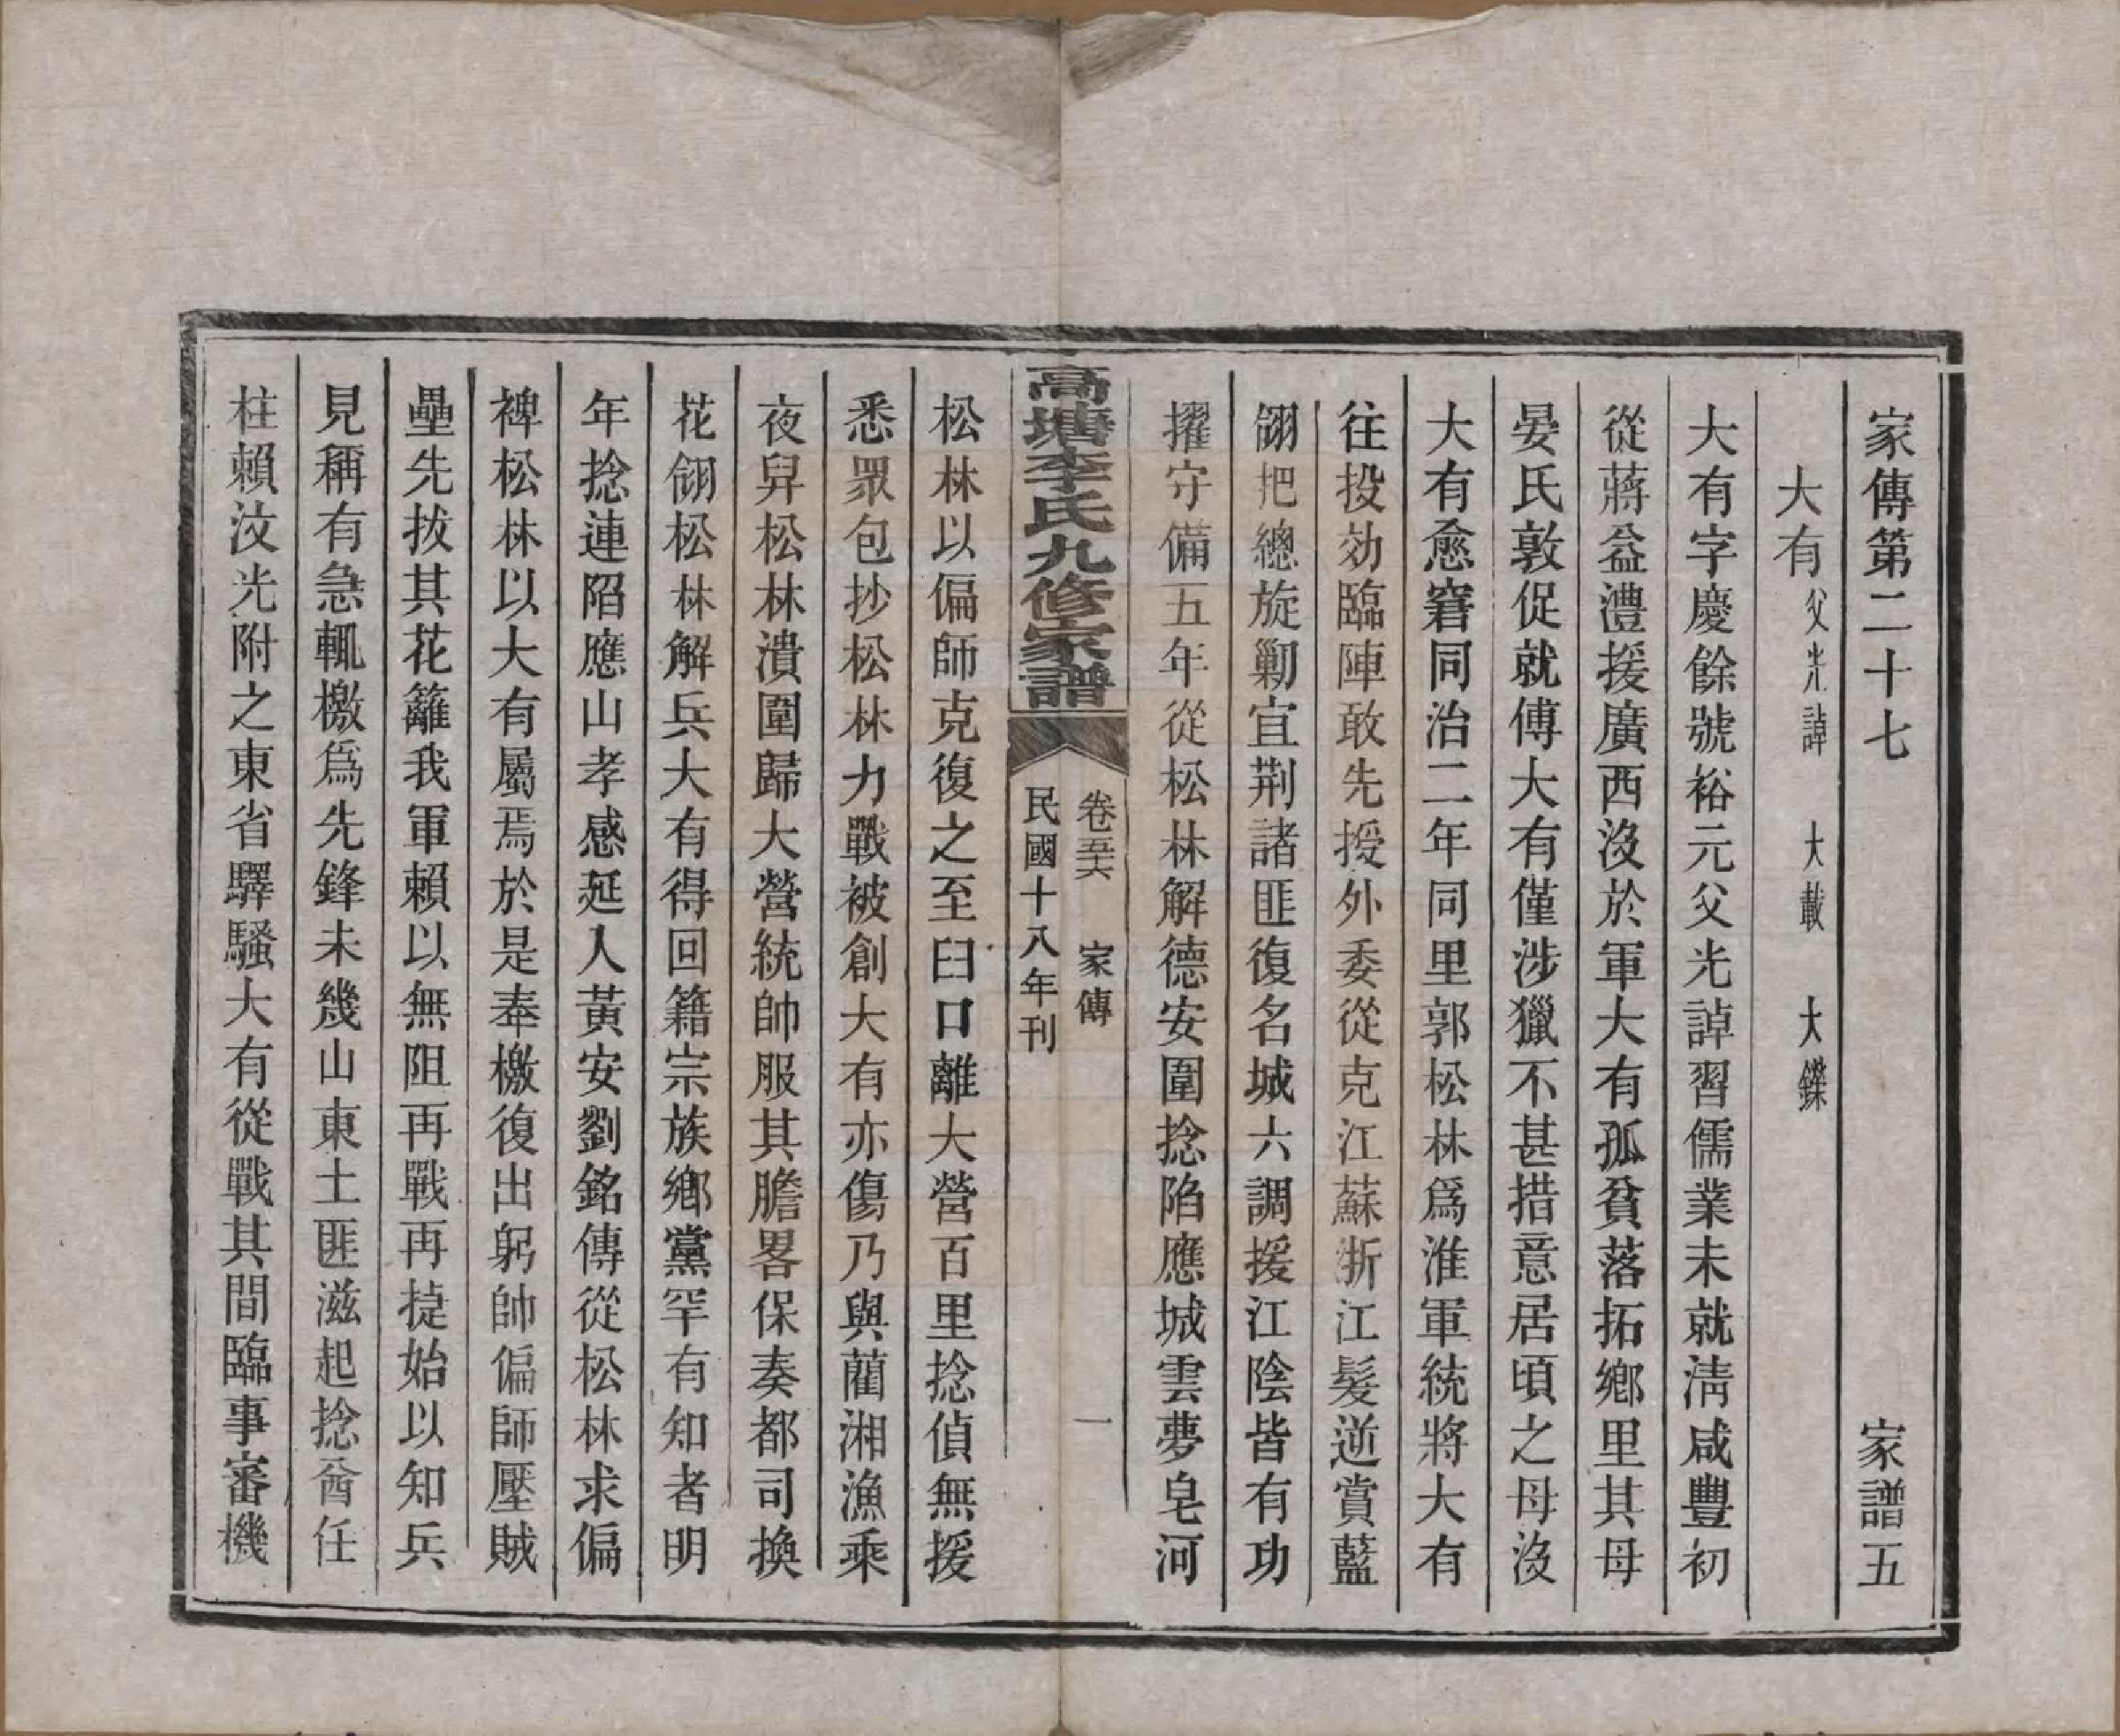 家傳第二十七 家譜五
大有父光諄 大載 大鏷
大有字慶餘號裕元父光諄習儒業未就淸咸豐初
從蔣益澧援廣西沒於軍大有孤貧落拓鄉里其母
晏氏敦促就傅大有僅涉獵不甚措意居頃之母沒
大有愈窘同治二年同里郭松林爲淮軍統將大有
往投効臨陣敢先授外委從克江蘇浙江髮逆賞藍
翎把總旋勦宜荆諸匪復名城六調援江陰皆有功
擢守備五年從松林解德安圍捻陷應城雲夢皂河
高塘李氏九修家譜
卷五六 家傳 一
民國十八年刊
松林以偏師克復之至臼口離大營百里捻偵無援
悉眾包抄松林力戰被創大有亦傷乃與藺湘漁乘
夜舁松林潰圍歸大營統帥服其膽畧保奏都司換
花翎松林解兵大有得回籍宗族鄉黨罕有知者明
年捻連陷應山孝感延入黃安劉銘傳從松林求偏
裨松林以大有屬焉於是奉檄復出躬帥偏師壓賊
壘先拔其花籬我軍賴以無阻再戰再捷始以知兵
見稱有急輒檄爲先鋒未幾山東土匪滋起捻酋任
柱賴汶光附之東省驛騷大有從戰其間臨事審機